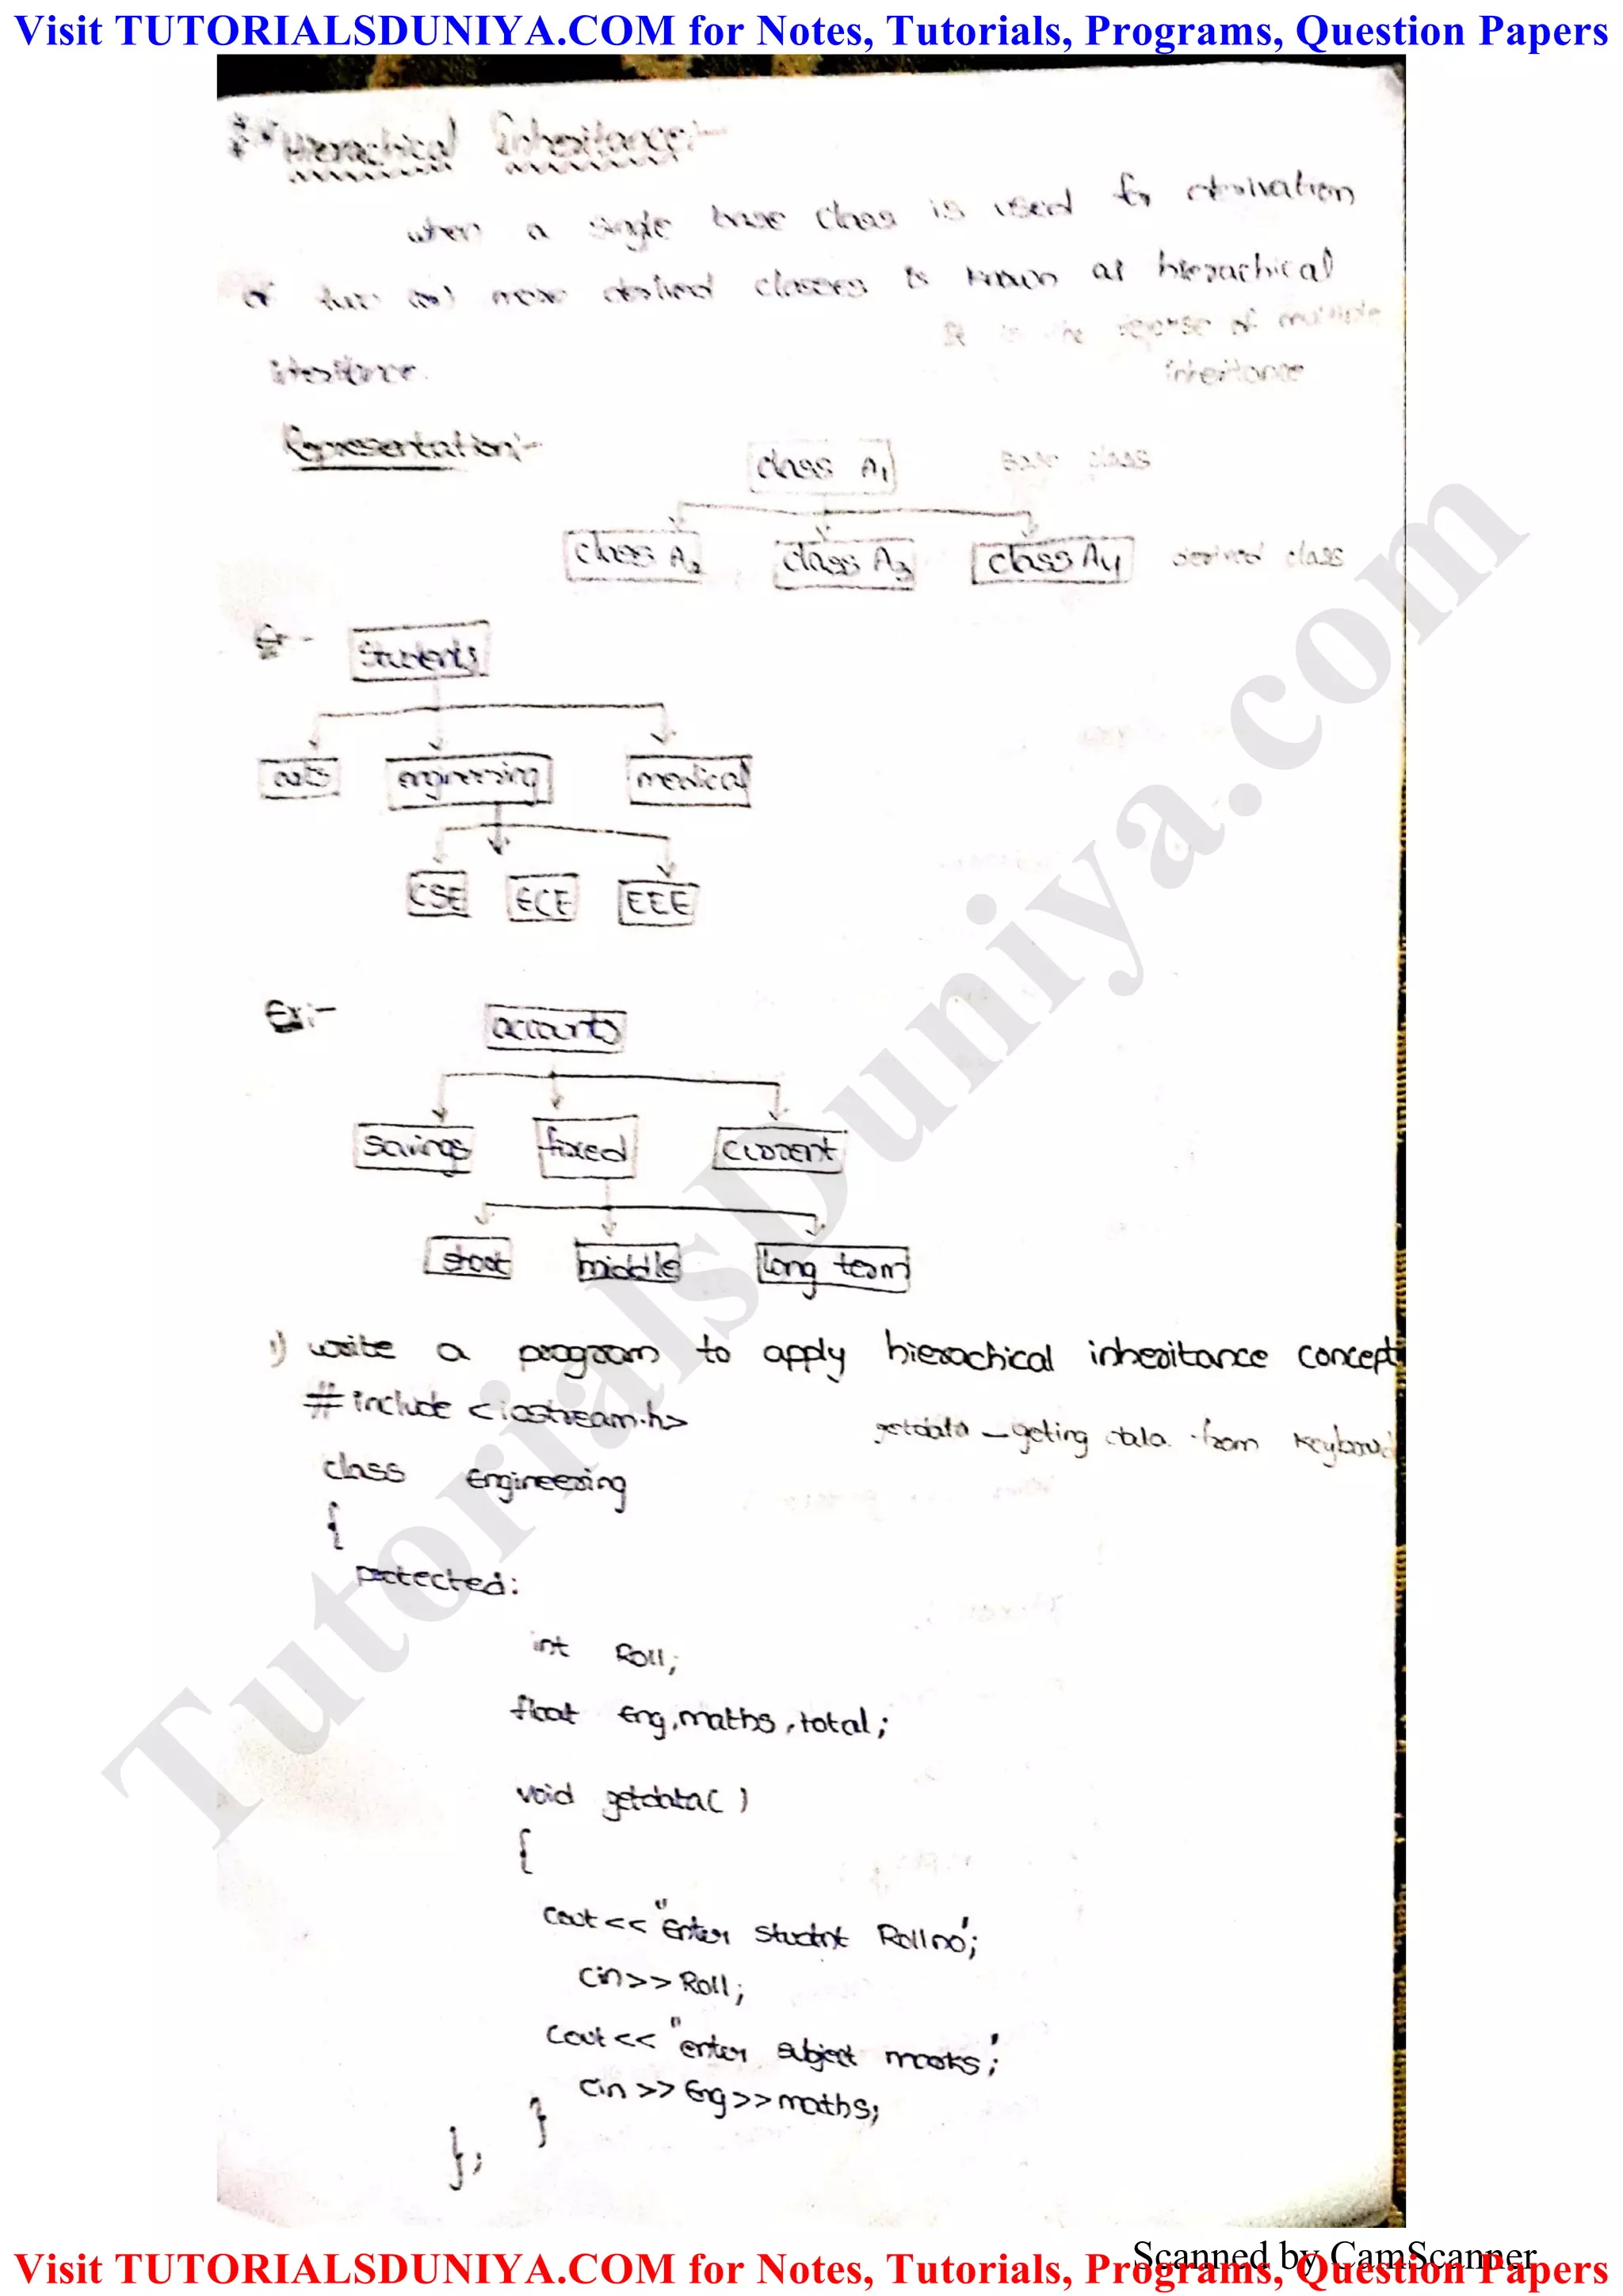 Visit TUTORIALSDUNIYA.COM for Notes, Tutorials, Programs, Question Papers
* * Hierachical Inheritance:-
when a single base class is used for derivation
of two (or) more derived classes is known as hierachical
It is the reverse of multiple
inheritance.
inheritance
Representation:-
class A1 Base class
class A2 class A3 class A4 derived class
Students
arts engineering medical
CSE ECE EEE
Ex:-
accounts
savings fixed current
short middle long term
1) write a program to apply hierachical inheritance concept
#include <iostream.h>
getdata - geting data from keyboard
class Engineering
{
protected:
int Roll;
float Eng,maths,total;
void getdata( )
{
cout<<"Enter studnt Rollno';
cin>>Roll;
cout<<"enter subject marks';
cin>>Eng>>maths;
}
};
TutorialsDuniya.com
Scanned by CamScanner
Visit TUTORIALSDUNIYA.COM for Notes, Tutorials, Programs, Question Papers